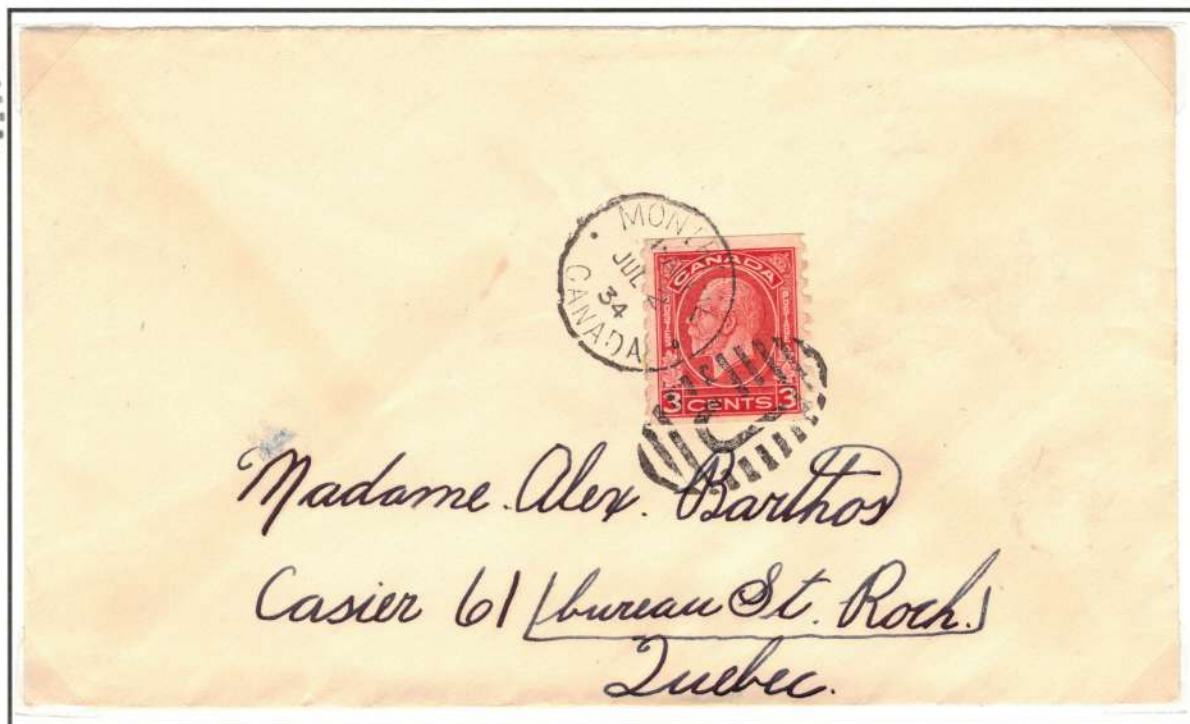 MONTR
JUL 2
34
CANADA
CANADA
POSTES POSTAGE
3 CENTS 3
C
Madame. Alex. Barthos
Casier 61 (bureau St. Roch.)
Quebec.